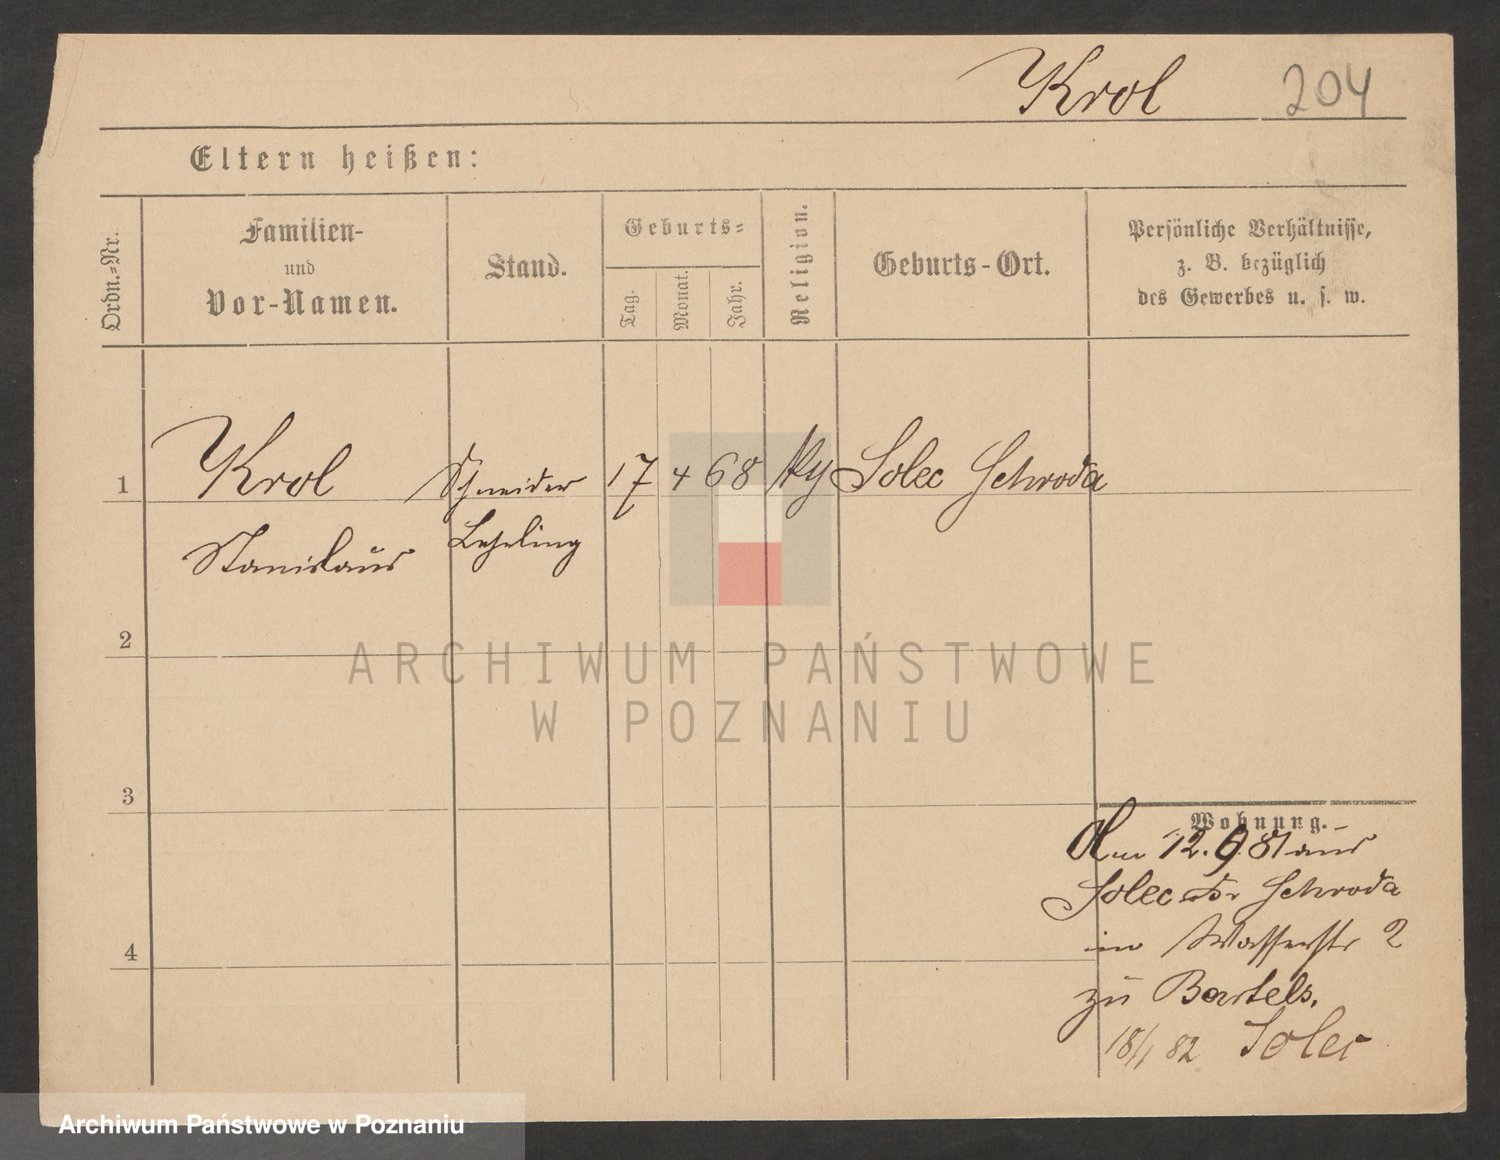 Krol 204
Eltern heißen:
Ordn.-Nr.
Familien-
und
Vor-Namen.
Stand.
Geburts-
Tag.
Monat.
Jahr.
Religion.
Geburts-Ort.
Persönliche Verhältnisse,
z. B. bezüglich
des Gewerbes u. s. w.
1 Krol Schneider 17 4 68 Solec Schroda
Stanislaus Lehrling
2
ARCHIWUM PAŃSTWOWE
W POZNANIU
3
Wohnung.
Am 12. 9 81 aus
Solec Schroda
in Wasserstr 2
zu Bartels.
18/1 82 Solec
4
Archiwum Państwowe w Poznaniu